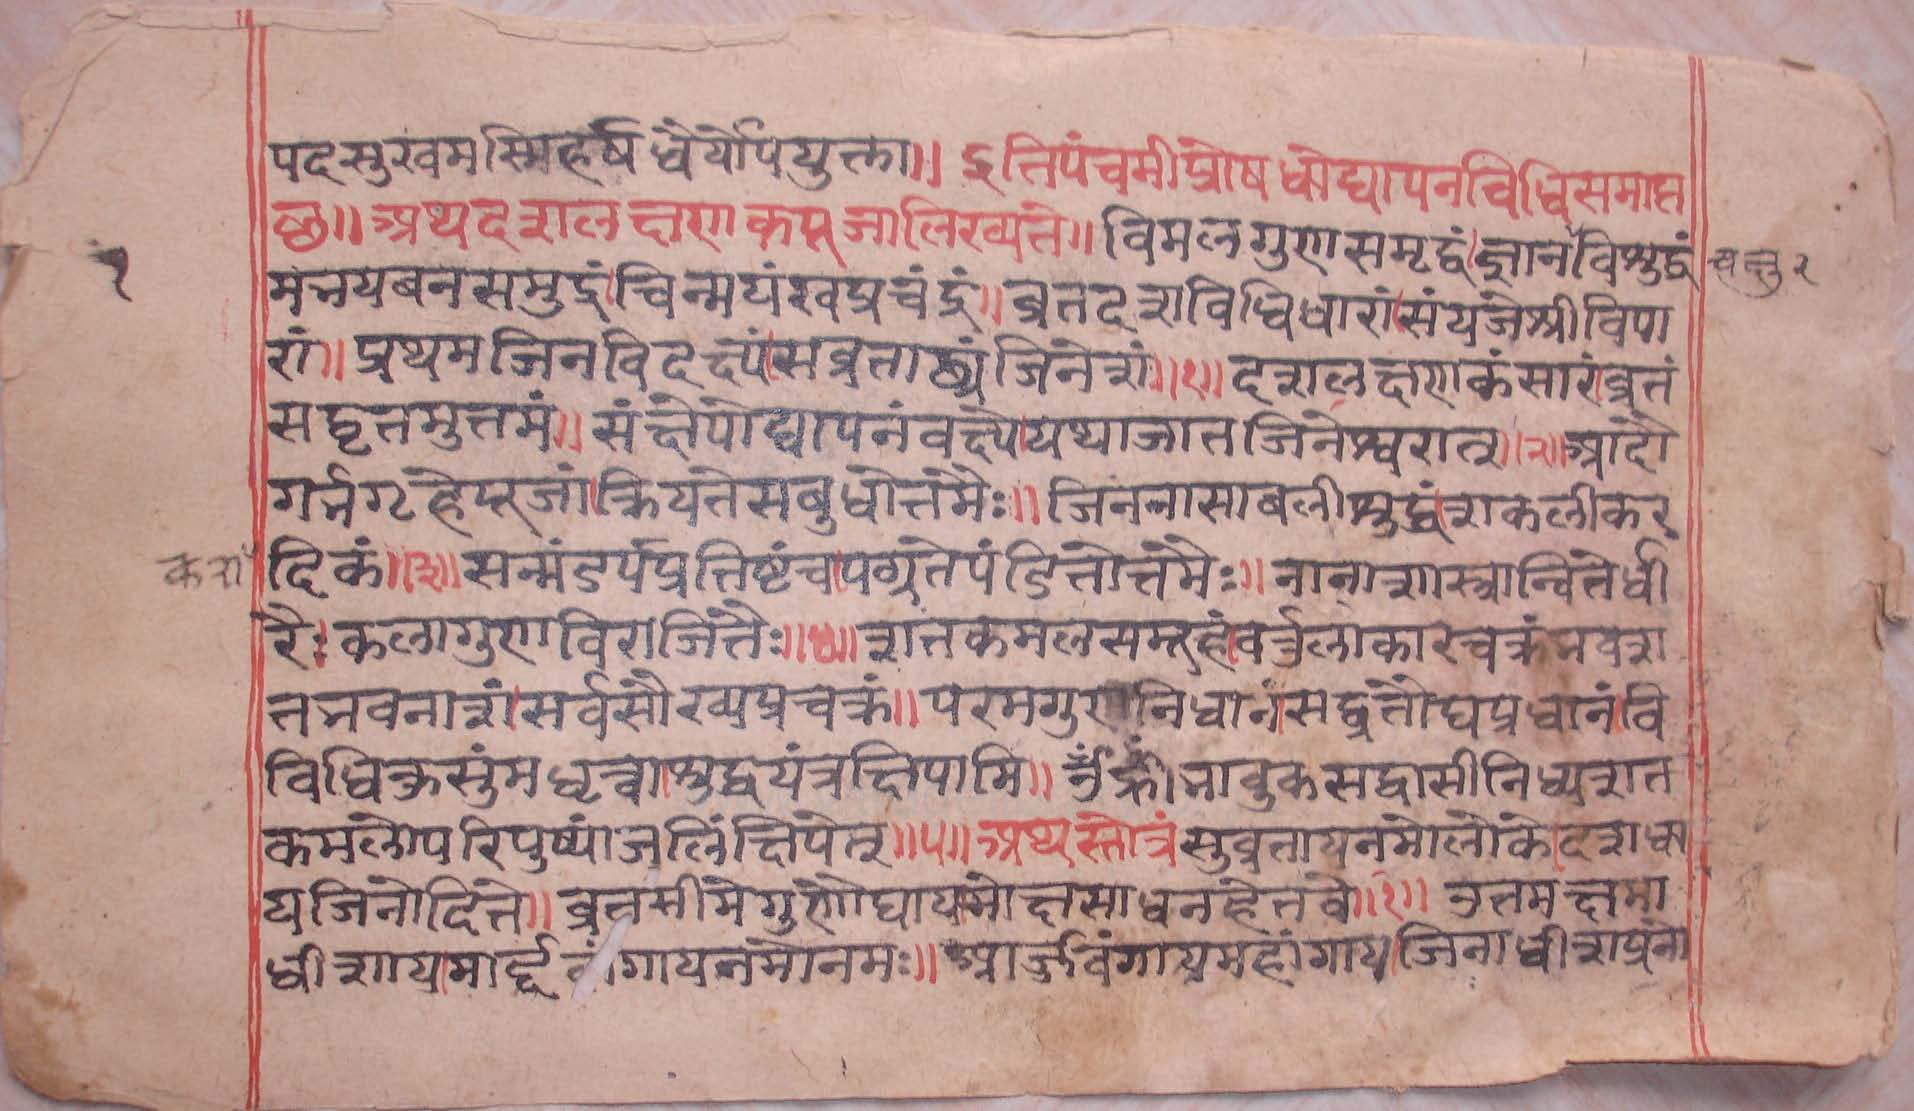 पदसुखमस्मिहर्षधैर्योपयुक्ता॥ इतिपंचमीप्रोषधोद्यापनविधिसमाप्त
छ॥ अथदशलक्षणकपूजालिख्यते॥ विमलगुणसमृद्धं।ज्ञानविशुद्धं
१
मभयबनसमुद्रं।चिन्मयंखप्रचंद्रं॥ व्रतदशविधिधारां।संयजेश्रीविपा
शं॥ प्रथमजिनविदक्ष्यं।सव्रताढ्यंजिनेशं॥१॥ दशलक्षणकंसारं।व्रतं
सद्वृत्तमुत्तमं॥ संक्षेपोद्यापनंवक्ष्ये।यथाजातजिनेश्वरात्॥२॥ आदौ
गर्भगृहेपूजां।क्रियतेसबुधोत्तमैः॥ जिननासाबलीशुद्धंशकलीकर
दिकं॥३॥ सन्मंडपंप्रतिष्टंच।पश्रुतेपंडितोत्तमैः॥ नानाशास्त्रान्वितेर्धी
रैः।कलागुणविराजितैः॥४॥ शतकमलसमूहं।वर्त्तुलाकारचक्रंभवश
तभवनाशं।सर्वसौख्यप्रचक्रं॥ परमगुणनिधानं।सद्व्रतौघप्रधानं।वि
विधिकुसुंमधृत्वा।शुद्धयंत्रक्षिपामि॥ भावुकसद्वासीनिध्यशत
कमलोपरिपुष्पांजलिंक्षिपेत्॥५॥ अथस्तोत्रंसुव्रतायनमोलोके।दशधा
यजिनोदिते॥ व्रतसीमेगुणौघाय।मोक्षसाधनहेतवे॥१॥ उत्तमक्षमा
धीशाय।मार्द्दवांगायनमोनमः॥ आर्ज्जवंगाय।महांगाय।जिनाधीशप्रनो